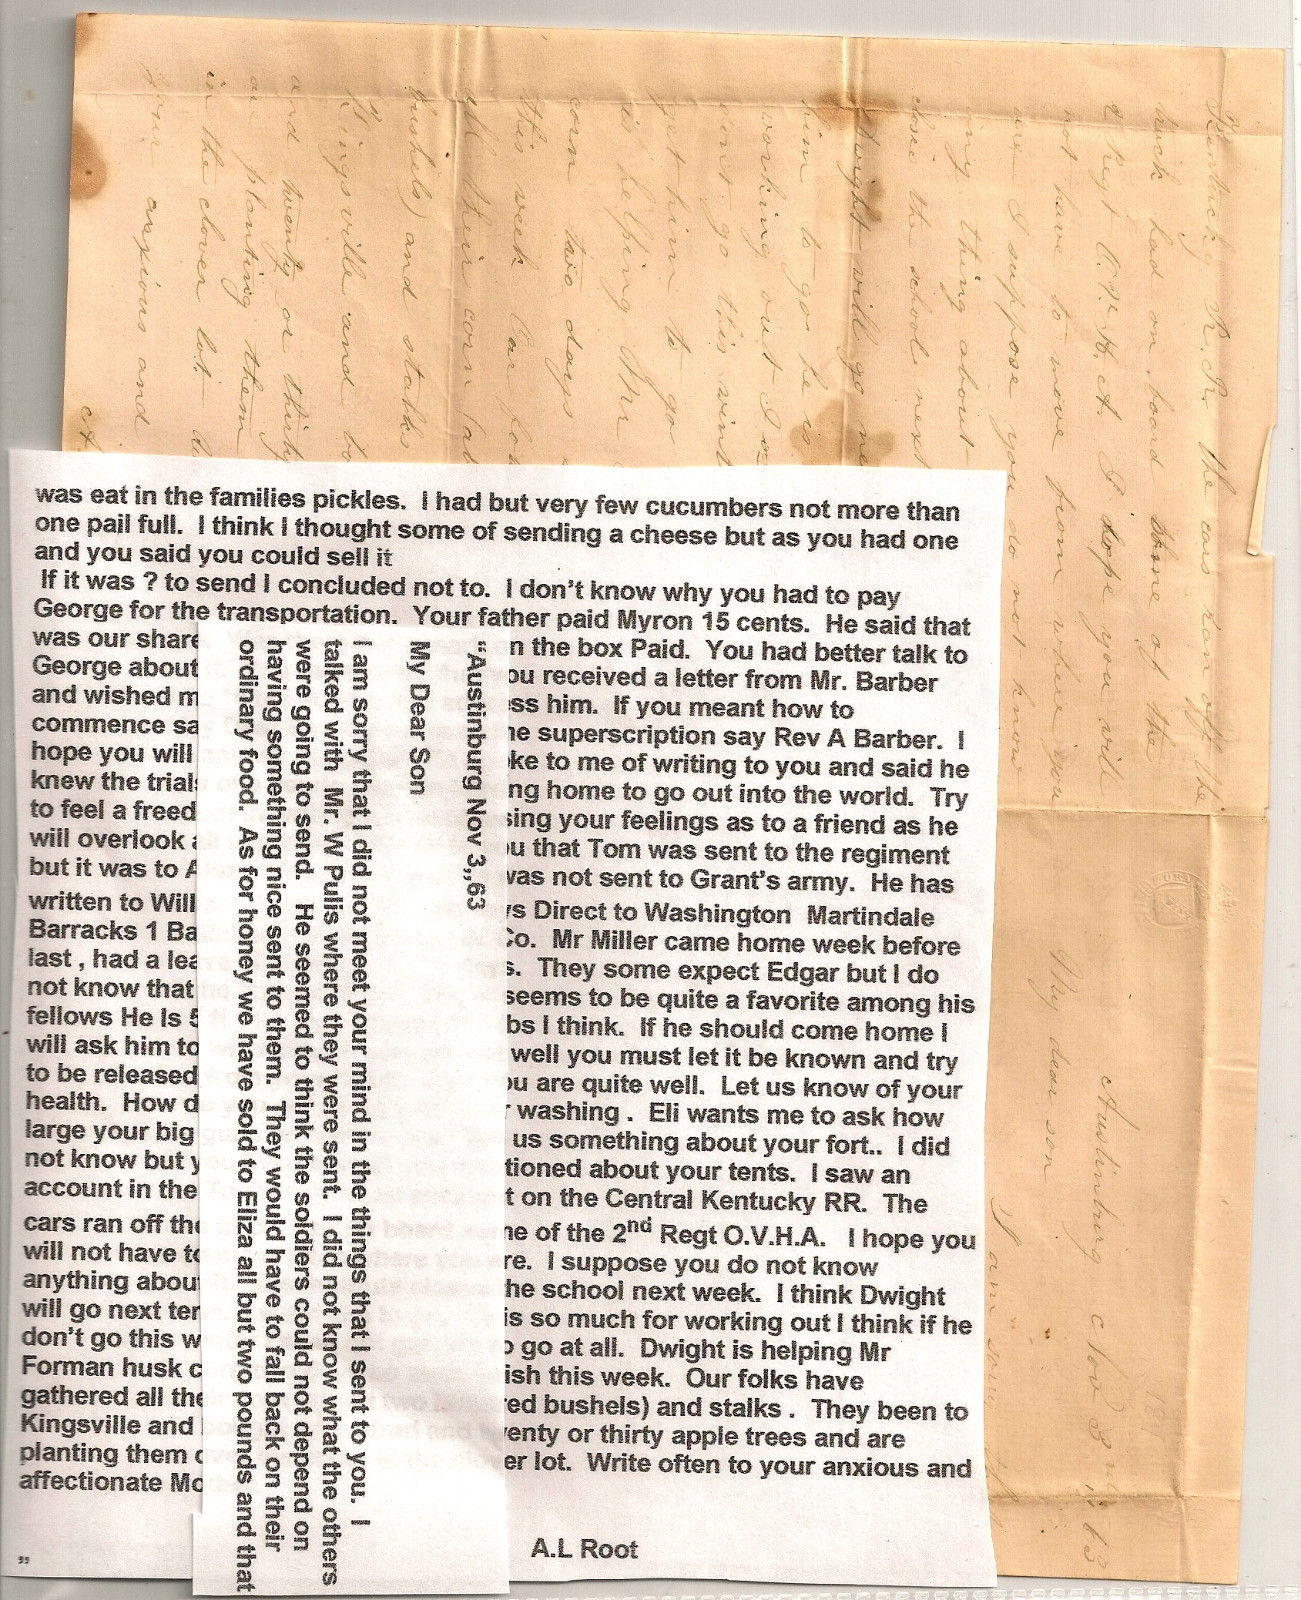 Kentucky R.R. the cars ran off the
track had on board some of the
2 Regt O.V.H.A. I hope you will
not have to move from where you
are I suppose you do not know
any thing about
close the school next
Dwight will go ne
him to go he is
working out I
dont go this wint
get him to go
is helping Mr
corn two days
this week Our folk
all their corn
bushels) and stalks
Kingsville and
and twenty or thirty
are planting them
in the clover lot.
your anxious and
Austinburg Nov 3 63
My dear son
I am sorry
was eat in the families pickles. I had but very few cucumbers not more than
one pail full. I think I thought some of sending a cheese but as you had one
and you said you could sell it
If it was ? to send I concluded not to. I don't know why you had to pay
George for the transportation. Your father paid Myron 15 cents. He said that
was our share n the box Paid. You had better talk to
George about ou received a letter from Mr. Barber
and wished m ss him. If you meant how to
commence sa ne superscription say Rev A Barber. I
hope you will oke to me of writing to you and said he
knew the trials ng home to go out into the world. Try
to feel a freed sing your feelings as to a friend as he
will overlook a u that Tom was sent to the regiment
but it was to A was not sent to Grant's army. He has
written to Will ys Direct to Washington Martindale
Barracks 1 Ba Co. Mr Miller came home week before
last , had a lea s. They some expect Edgar but I do
not know that seems to be quite a favorite among his
fellows He Is 5 bs I think. If he should come home I
will ask him to well you must let it be known and try
to be released ou are quite well. Let us know of your
health. How d r washing . Eli wants me to ask how
large your big us something about your fort.. I did
not know but y tioned about your tents. I saw an
account in the t on the Central Kentucky RR. The
cars ran off the ne of the 2nd Regt O.V.H.A. I hope you
will not have to re. I suppose you do not know
anything about he school next week. I think Dwight
will go next ter is so much for working out I think if he
don't go this w o go at all. Dwight is helping Mr
Forman husk c ish this week. Our folks have
gathered all the red bushels) and stalks . They been to
Kingsville and wenty or thirty apple trees and are
planting them er lot. Write often to your anxious and
affectionate Mo
A.L Root
"
"Austinburg Nov 3,,63
My Dear Son
I am sorry that I did not meet your mind in the things that I sent to you. I
talked with Mr. W Pulis where they were sent. I did not know what the others
were going to send. He seemed to think the soldiers could not depend on
having something nice sent to them. They would have to fall back on their
ordinary food. As for honey we have sold to Eliza all but two pounds and that